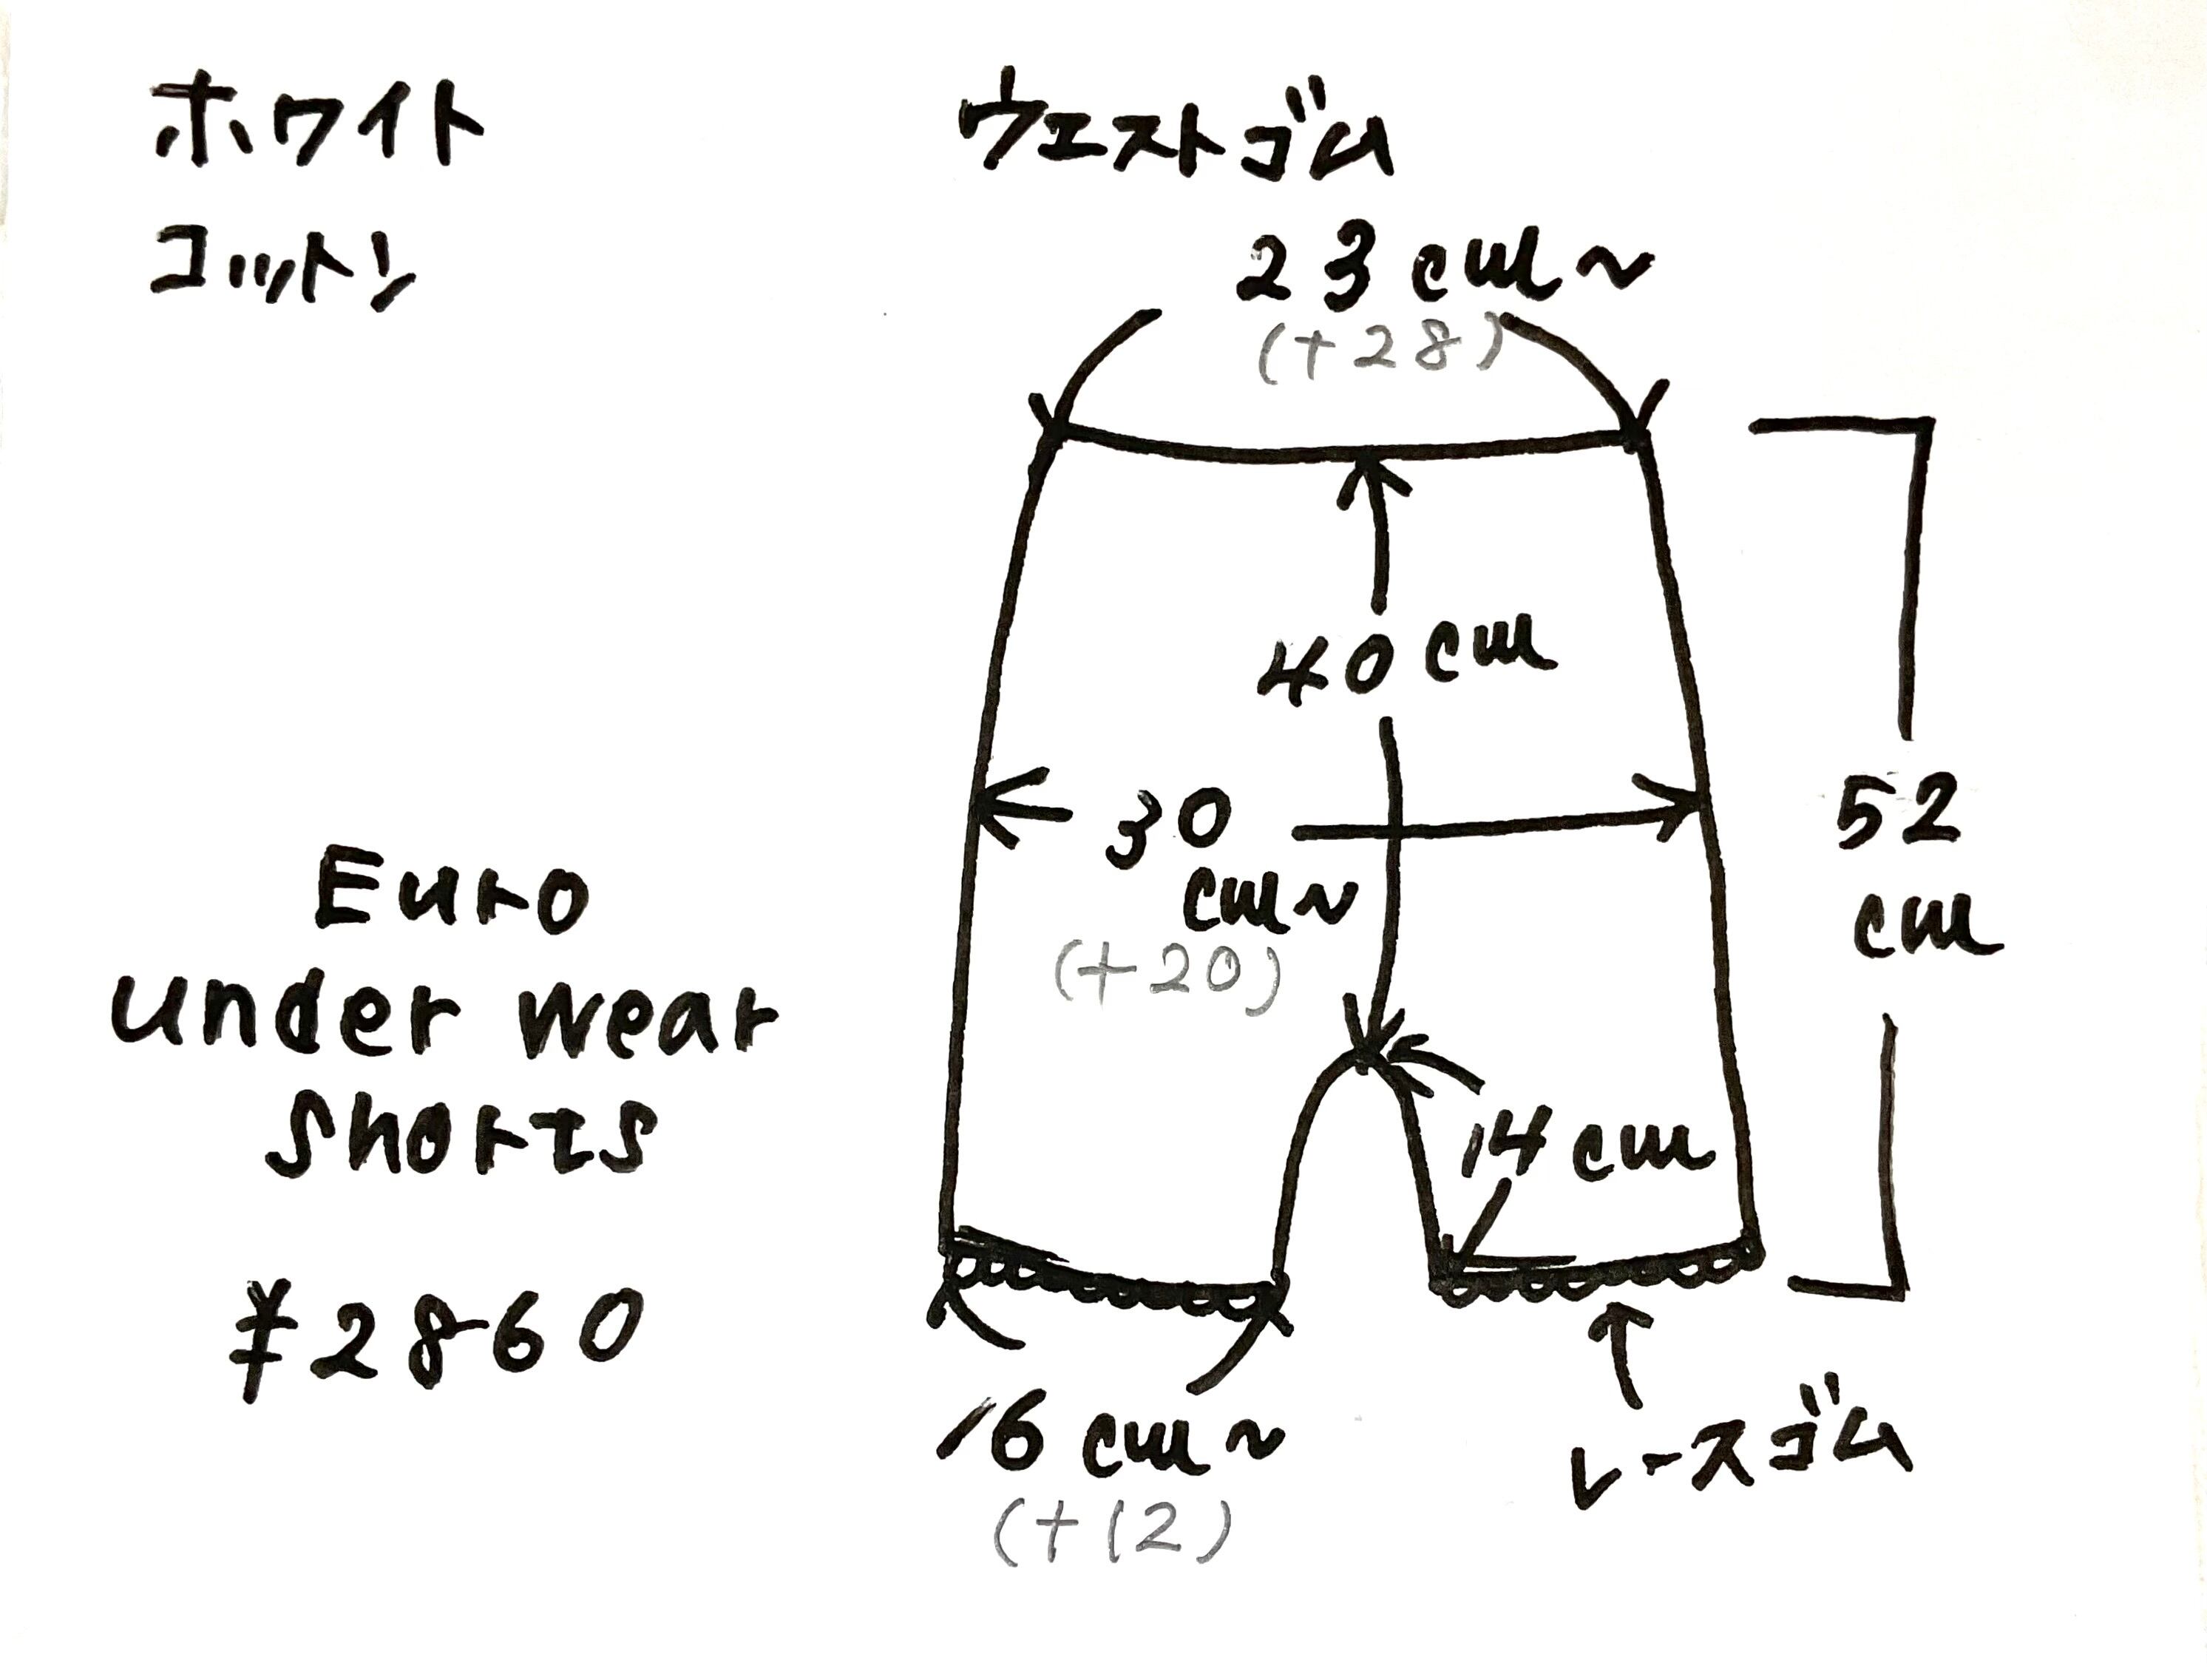 ホワイト
コットン
ウエストゴム
23cm~
(+28)
40cm
30
cm~
(+20)
52
cm
14cm
16cm~
(+12)
レースゴム
Euro
under wear
shorts
¥2860